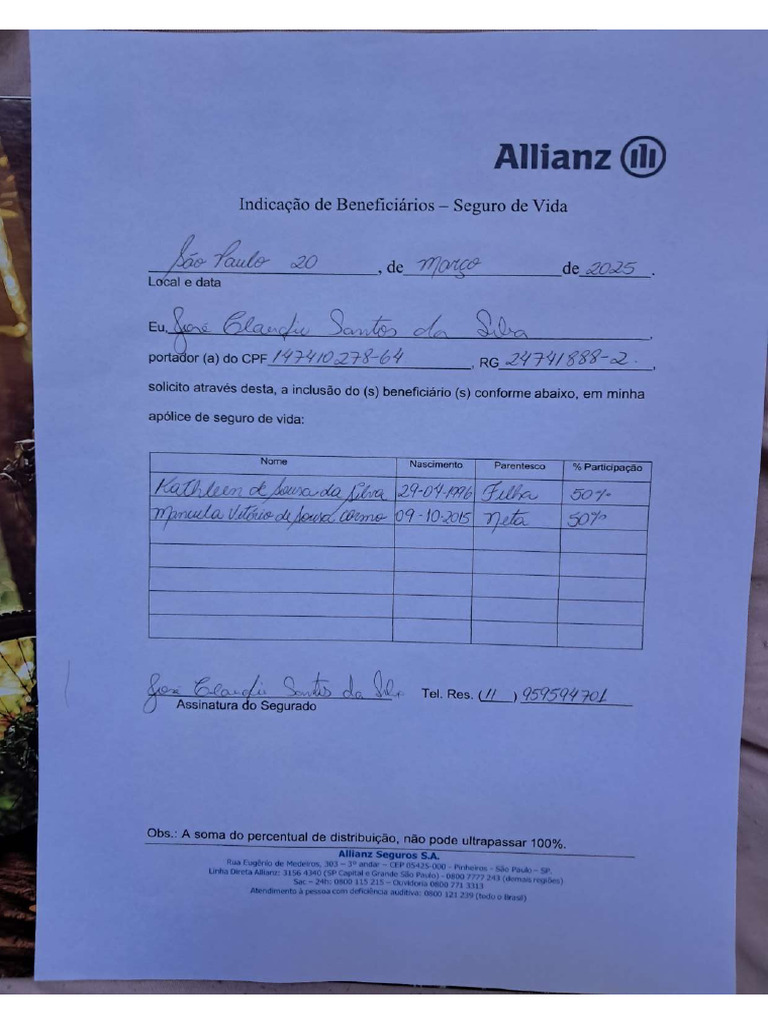 Allianz
Indicação de Beneficiários – Seguro de Vida
São Paulo 20, de Março de 2025.
Local e data
Eu, José Claudio Santos da Silva,
portador (a) do CPF 147410278-64, RG 24741888-2.,
solicito através desta, a inclusão do (s) beneficiário (s) conforme abaixo, em minha
apólice de seguro de vida:
Nome Nascimento Parentesco % Participação
Kathleen de Sousa da Silva 29-04-1996 Filha 50%
Manuela Vitório de Sousa 09-10-2015 Neta 50%
José Claudio Santos da Silva Tel. Res. (11) 959594701
Assinatura do Segurado
Obs.: A soma do percentual de distribuição, não pode ultrapassar 100%.
Allianz Seguros S.A.
Rua Eugênio de Medeiros, 303 – 3º andar – CEP 05425-000 - Pinheiros - São Paulo – SP.
Linha Direta Allianz: 3156 4340 (SP Capital e Grande São Paulo) - 0800 7777 243 (demais regiões)
Sac – 24h: 0800 115 215 – Ouvidoria 0800 771 3313
Atendimento à pessoa com deficiência auditiva: 0800 121 239 (todo o Brasil)